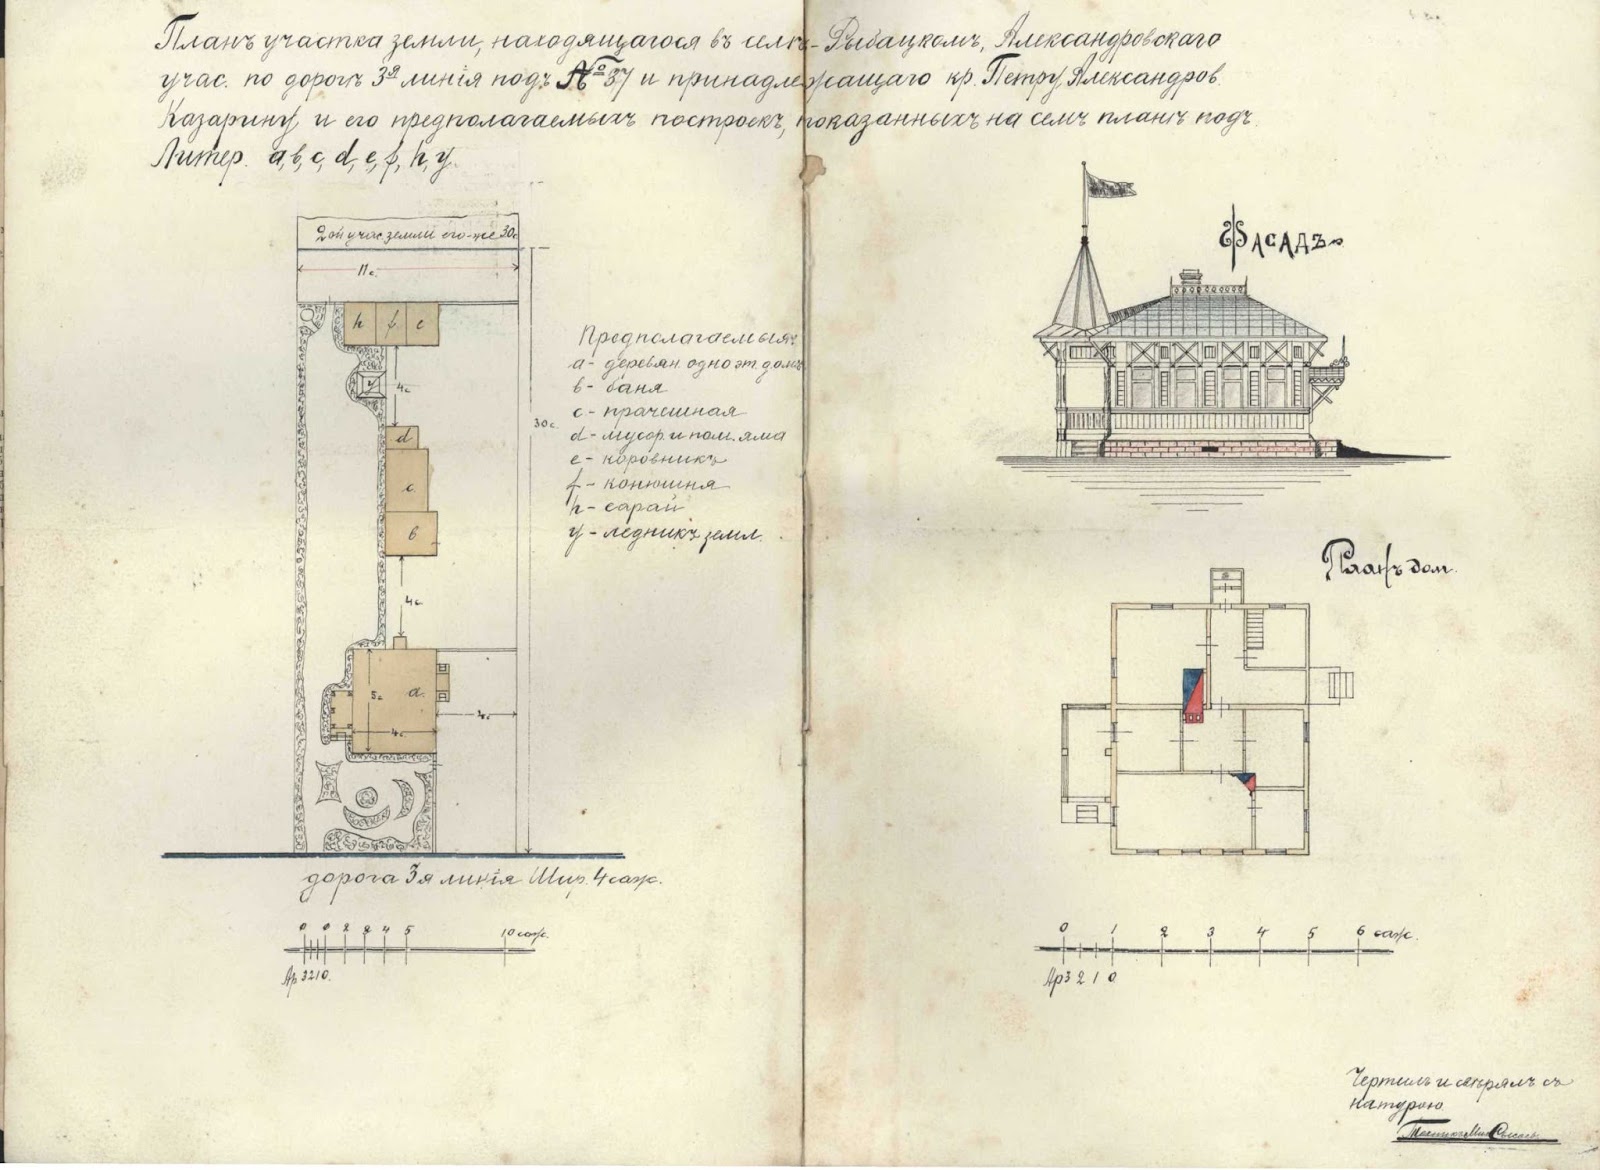 Планъ участка земли, находящагося въ селѣ-Рыбацкомъ, Александровскаго
учас. по дорогѣ 3я линія подъ № 37 и принадлежащаго кр. Петру Александров.
Казарину и его предполагаемыхъ построекъ, показанныхъ на семъ планѣ подъ
Литер. а, в, с, d, e, f, h, y.
2ой учас. земли его-же 30с
11с.
h f e
y
4с
d
c
в
30с.
4с
а.
5с
4с
дорога 3я линія Шир. 4 саж.
0 0 2 3 4 5 10 саж.
Ар 3 2 1 0.
Предполагаемыя
а - деревян. одноэт. домъ
в - баня
с - прачешная
d - мусор. и пом. яма
е - коровникъ
f - конюшня
h - сарай
y - ледникъ земл.
Фасадъ
Планъ дом.
0 1 2 3 4 5 6 саж.
Ар 3 2 1 0
Чертилъ и свѣрялъ съ
натурою